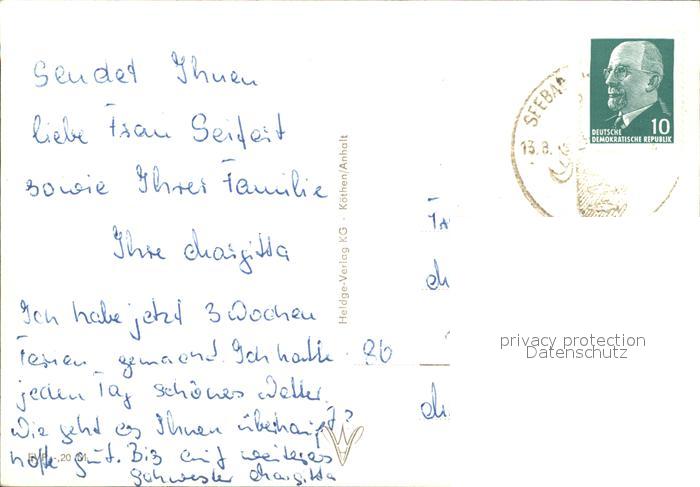 Sendet Ihnen
liebe Frau Seifert
sowie Ihrer Familie
Ihre Margitta
Ich habe jetzt 3 Wochen
Ferien gemacht. Ich hatte
jeden Tag schönes Wetter.
Wie geht es Ihnen überhaupt?
hoffe gut. Bis auf weiteres
Schwester Margitta
Heldge-Verlag KG · Köthen/Anhalt
SEEBA
13.8.
10
DEUTSCHE
DEMOKRATISCHE REPUBLIK
privacy protection
Datenschutz